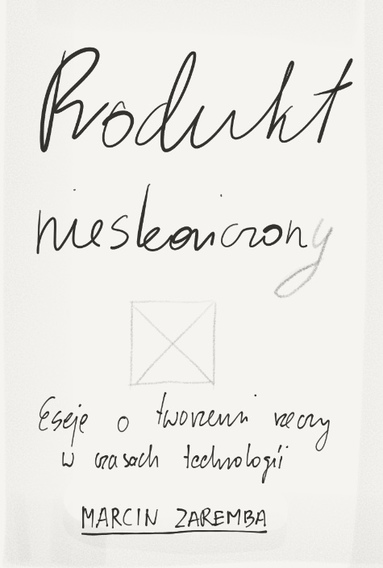 Produkt
nieskończony
Eseje o tworzeniu rzeczy
w czasach technologii
MARCIN ZAREMBA